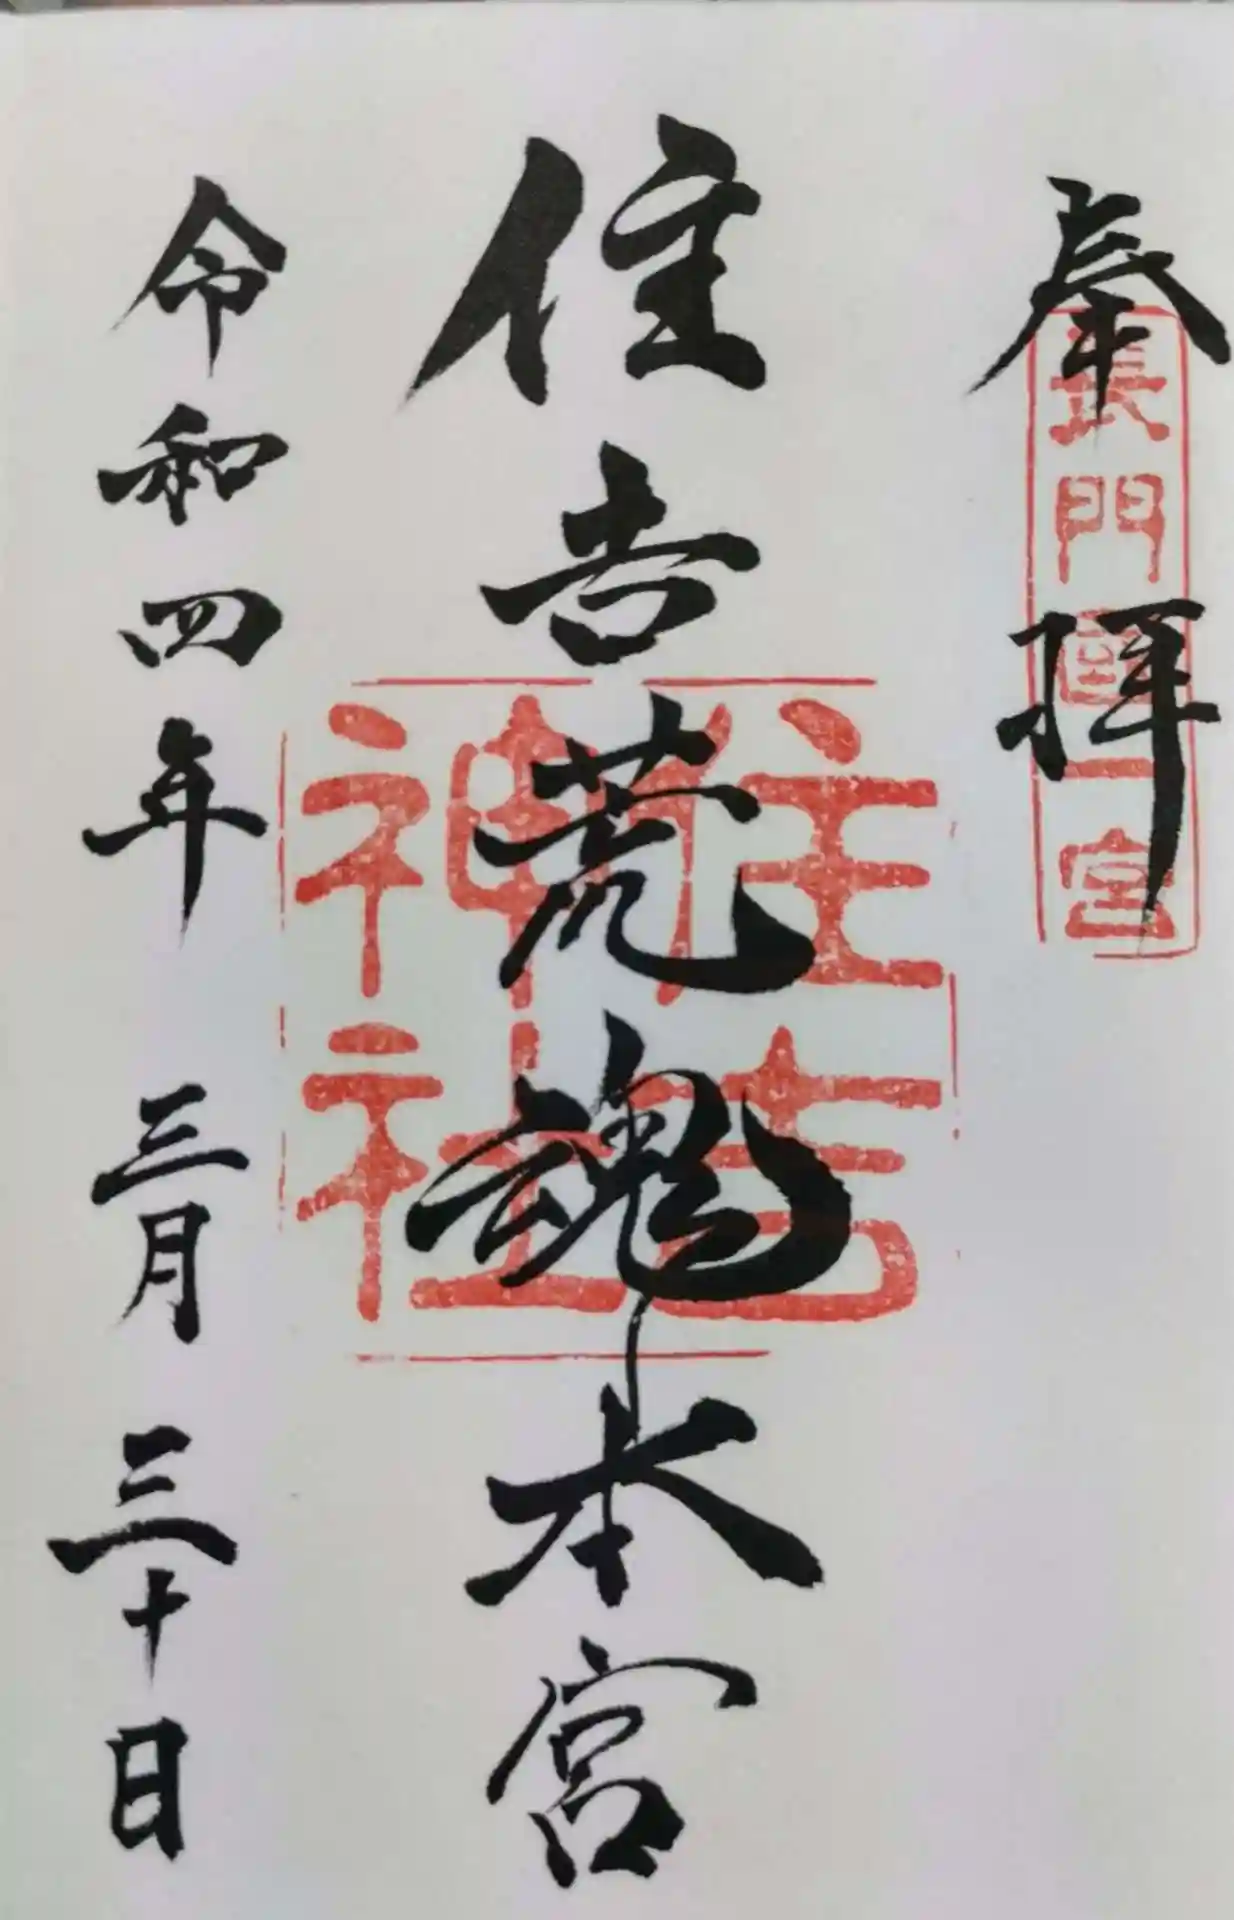 奉拝
長門國一宮
住吉荒魂本宮
住吉
神社
令和四年 三月 三十日